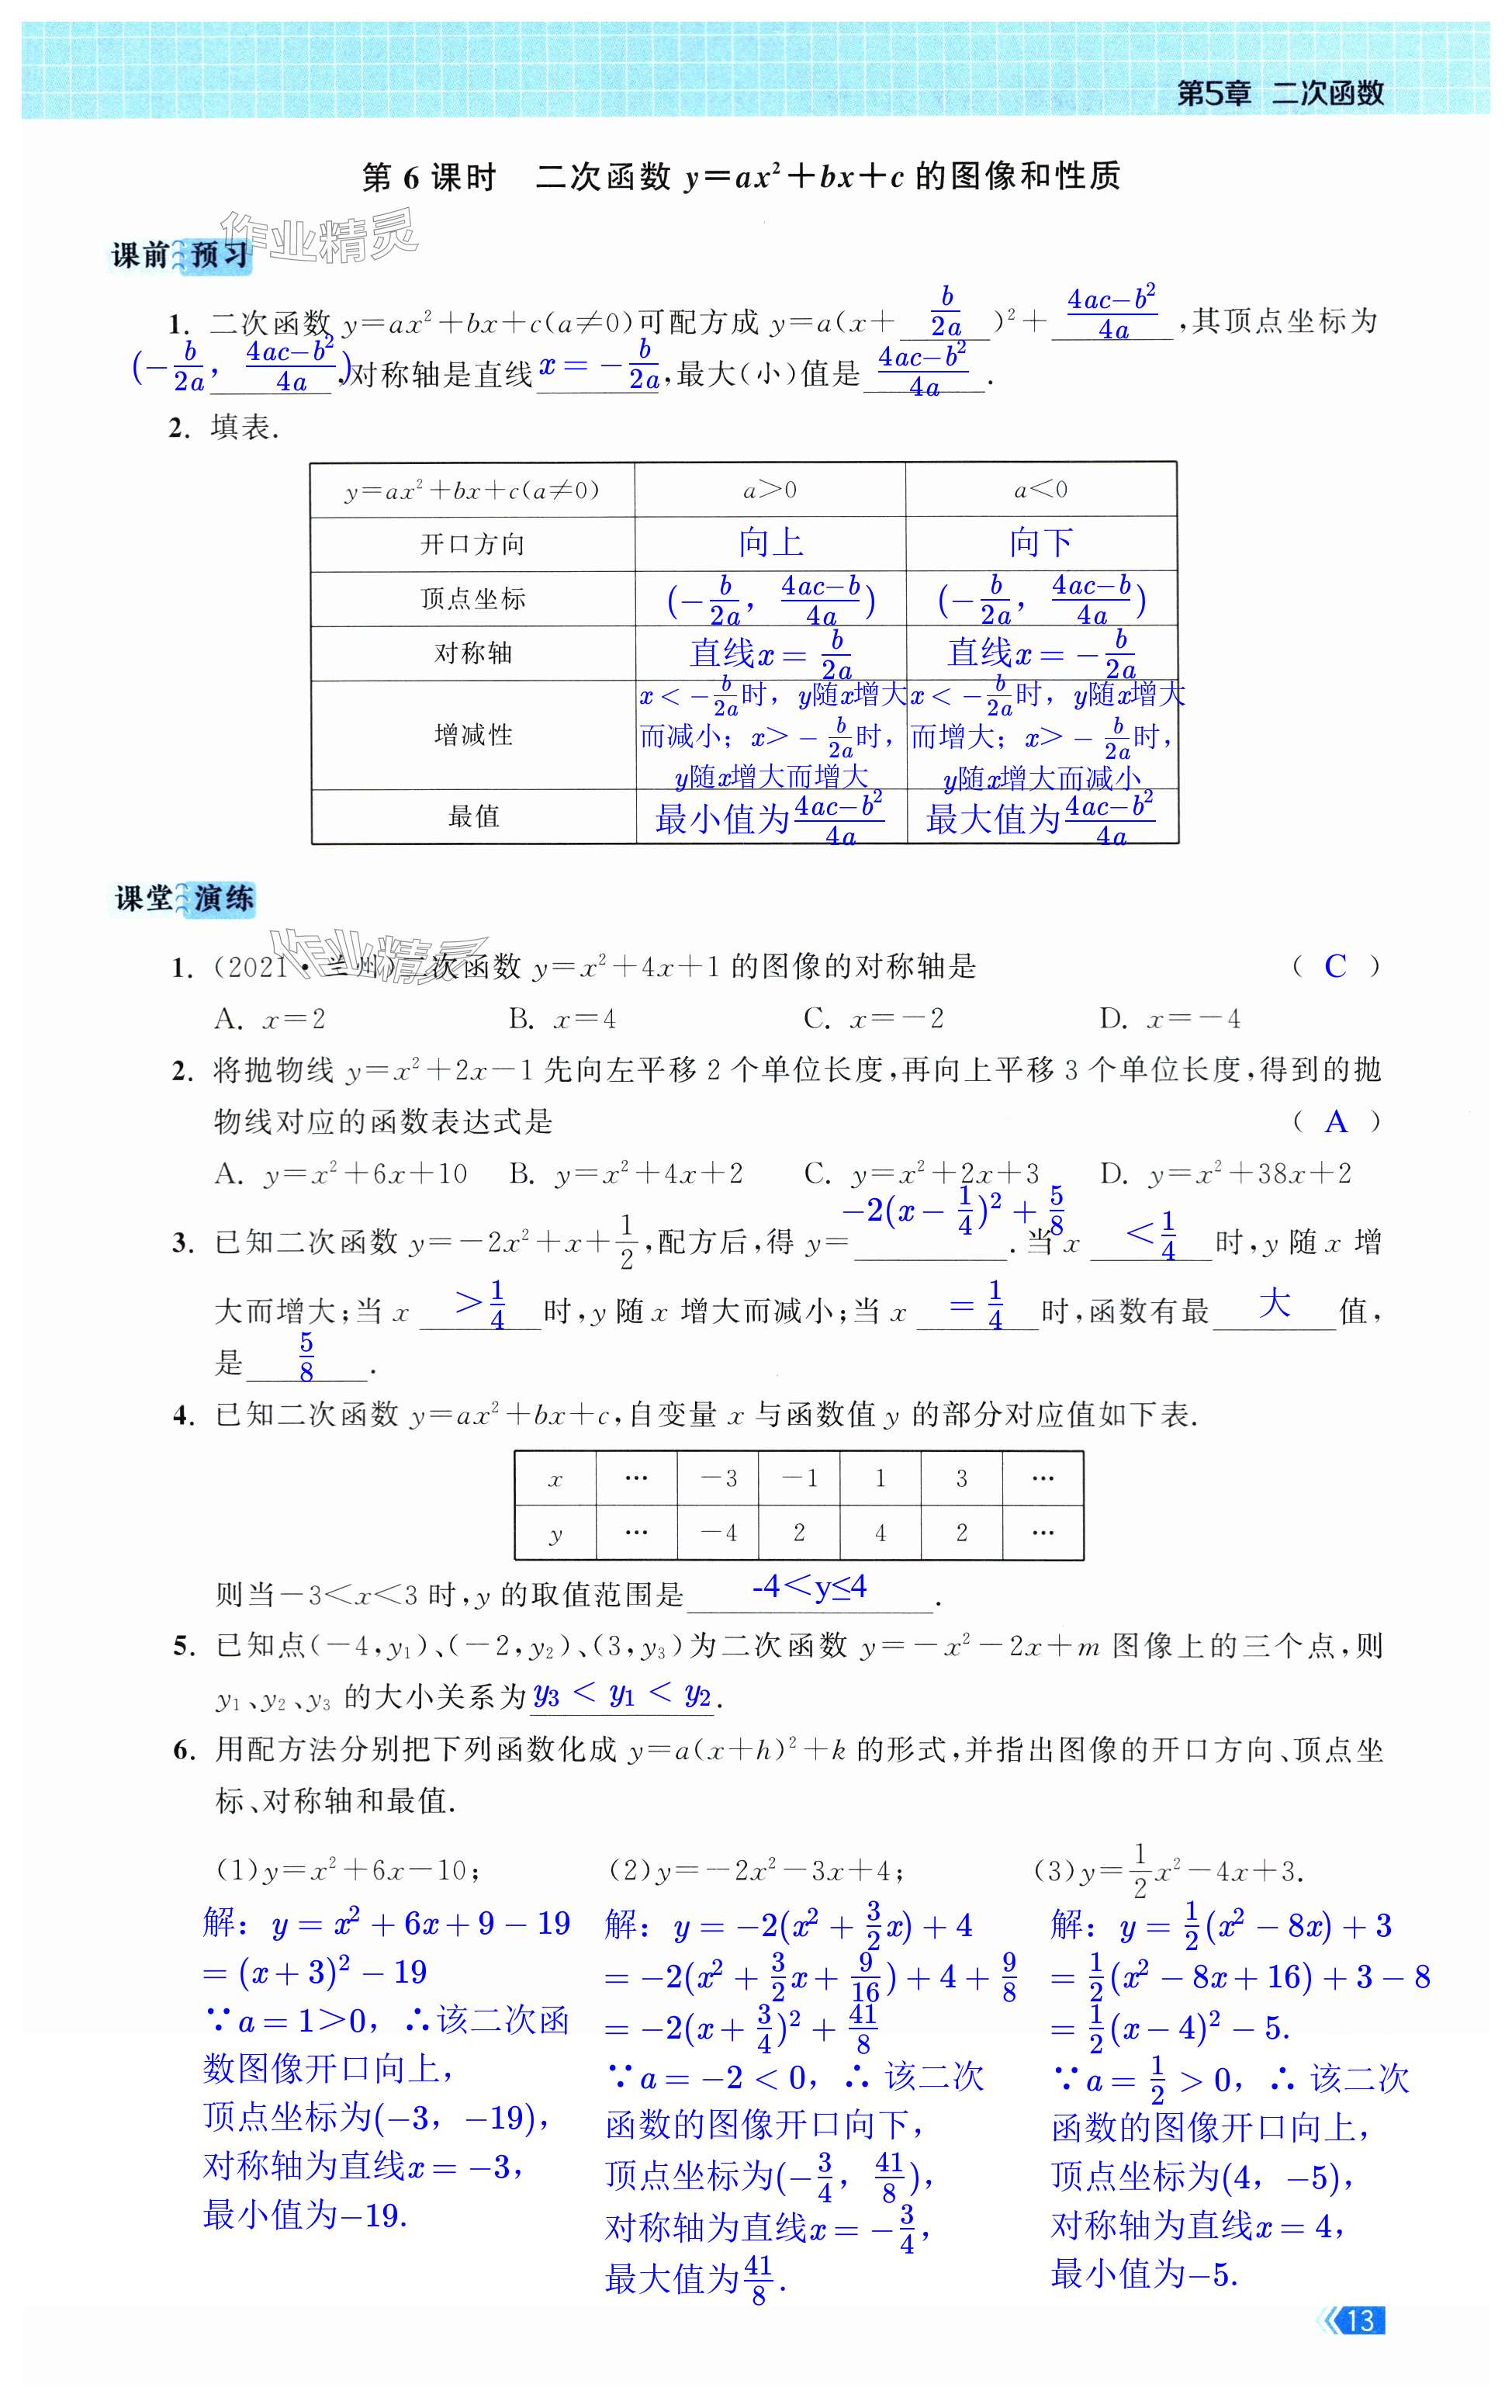 第5章 二次函数
第 6 课时 二次函数 y=ax²+bx+c 的图像和性质
作业精灵
课前 预习
1. 二次函数 y=ax²+bx+c(a≠0)可配方成 y=a(x+ b/2a )²+ (4ac−b²)/4a ,其顶点坐标为
(−b/2a, (4ac−b²)/4a),对称轴是直线 x=−b/2a,最大(小)值是 (4ac−b²)/4a .
2. 填表.
y=ax²+bx+c(a≠0) a>0 a<0
开口方向 向上 向下
顶点坐标 (−b/2a, (4ac−b)/4a) (−b/2a, (4ac−b)/4a)
对称轴 直线x= b/2a 直线x=−b/2a
增减性 x<−b/2a时, y随x增大而减小; x>−b/2a时, y随x增大而增大 x<−b/2a时, y随x增大而增大; x>−b/2a时, y随x增大而减小
最值 最小值为(4ac−b²)/4a 最大值为(4ac−b²)/4a
课堂 演练
作业精灵
1. (2021·兰州)二次函数 y=x²+4x+1 的图像的对称轴是 ( C )
A. x=2 B. x=4 C. x=−2 D. x=−4
2. 将抛物线 y=x²+2x−1 先向左平移 2 个单位长度,再向上平移 3 个单位长度,得到的抛
物线对应的函数表达式是 ( A )
A. y=x²+6x+10 B. y=x²+4x+2 C. y=x²+2x+3 D. y=x²+38x+2
3. 已知二次函数 y=−2x²+x+1/2,配方后,得 y= −2(x−1/4)²+5/8 . 当 x <1/4 时,y 随 x 增
大而增大;当 x >1/4 时,y 随 x 增大而减小;当 x =1/4 时,函数有最 大 值,
是 5/8 .
4. 已知二次函数 y=ax²+bx+c,自变量 x 与函数值 y 的部分对应值如下表.
x … −3 −1 1 3 …
y … −4 2 4 2 …
则当−3<x<3 时,y 的取值范围是 -4<y≤4 .
5. 已知点(−4,y₁)、(−2,y₂)、(3,y₃)为二次函数 y=−x²−2x+m 图像上的三个点,则
y₁、y₂、y₃ 的大小关系为 y₃<y₁<y₂ .
6. 用配方法分别把下列函数化成 y=a(x+h)²+k 的形式,并指出图像的开口方向、顶点坐
标、对称轴和最值.
(1)y=x²+6x−10; (2)y=−2x²−3x+4; (3)y=1/2x²−4x+3.
解: y=x²+6x+9−19
=(x+3)²−19
∵a=1>0, ∴该二次函
数图像开口向上,
顶点坐标为(−3, −19),
对称轴为直线x=−3,
最小值为−19.
解: y=−2(x²+3/2x)+4
=−2(x²+3/2x+9/16)+4+9/8
=−2(x+3/4)²+41/8
∵a=−2<0, ∴ 该二次
函数的图像开口向下,
顶点坐标为(−3/4, 41/8),
对称轴为直线x=−3/4,
最大值为41/8.
解: y=1/2(x²−8x)+3
=1/2(x²−8x+16)+3−8
=1/2(x−4)²−5.
∵a=1/2>0, ∴ 该二次
函数的图像开口向上,
顶点坐标为(4, −5),
对称轴为直线x=4,
最小值为−5.
13